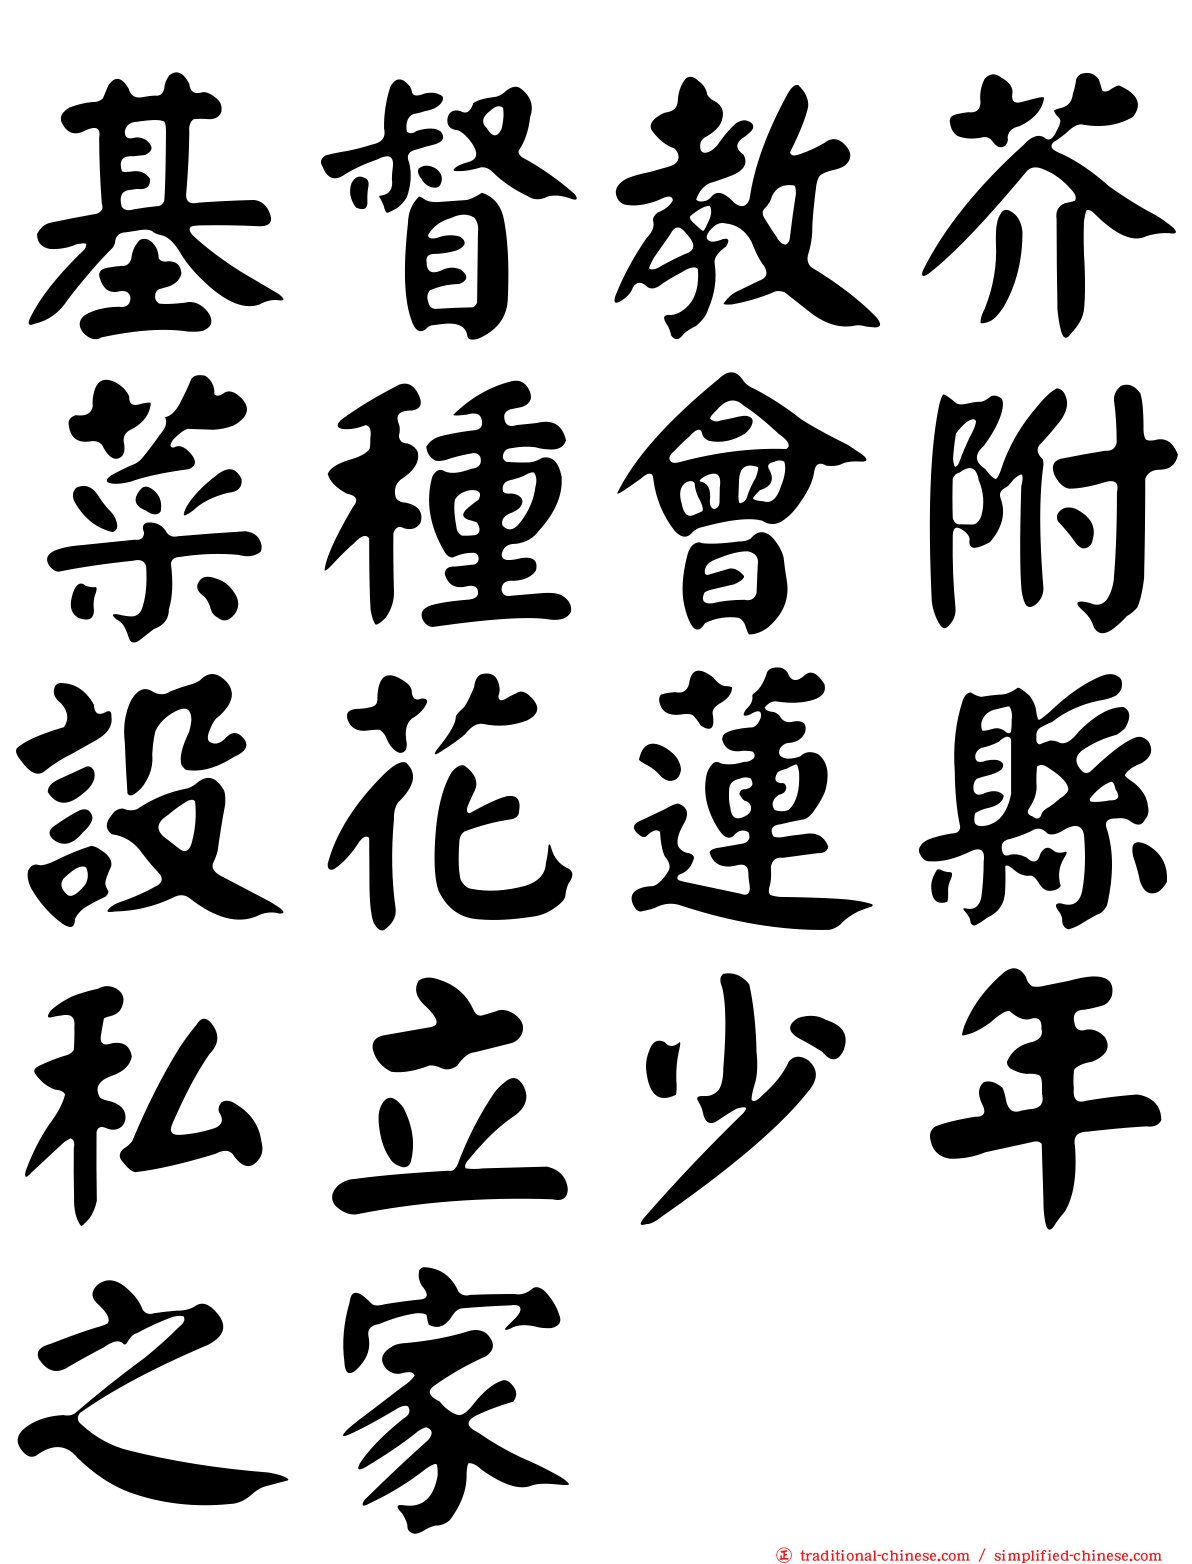 基督教芥
菜種會附
設花蓮縣
私立少年
之家
正 traditional-chinese.com / simplified-chinese.com